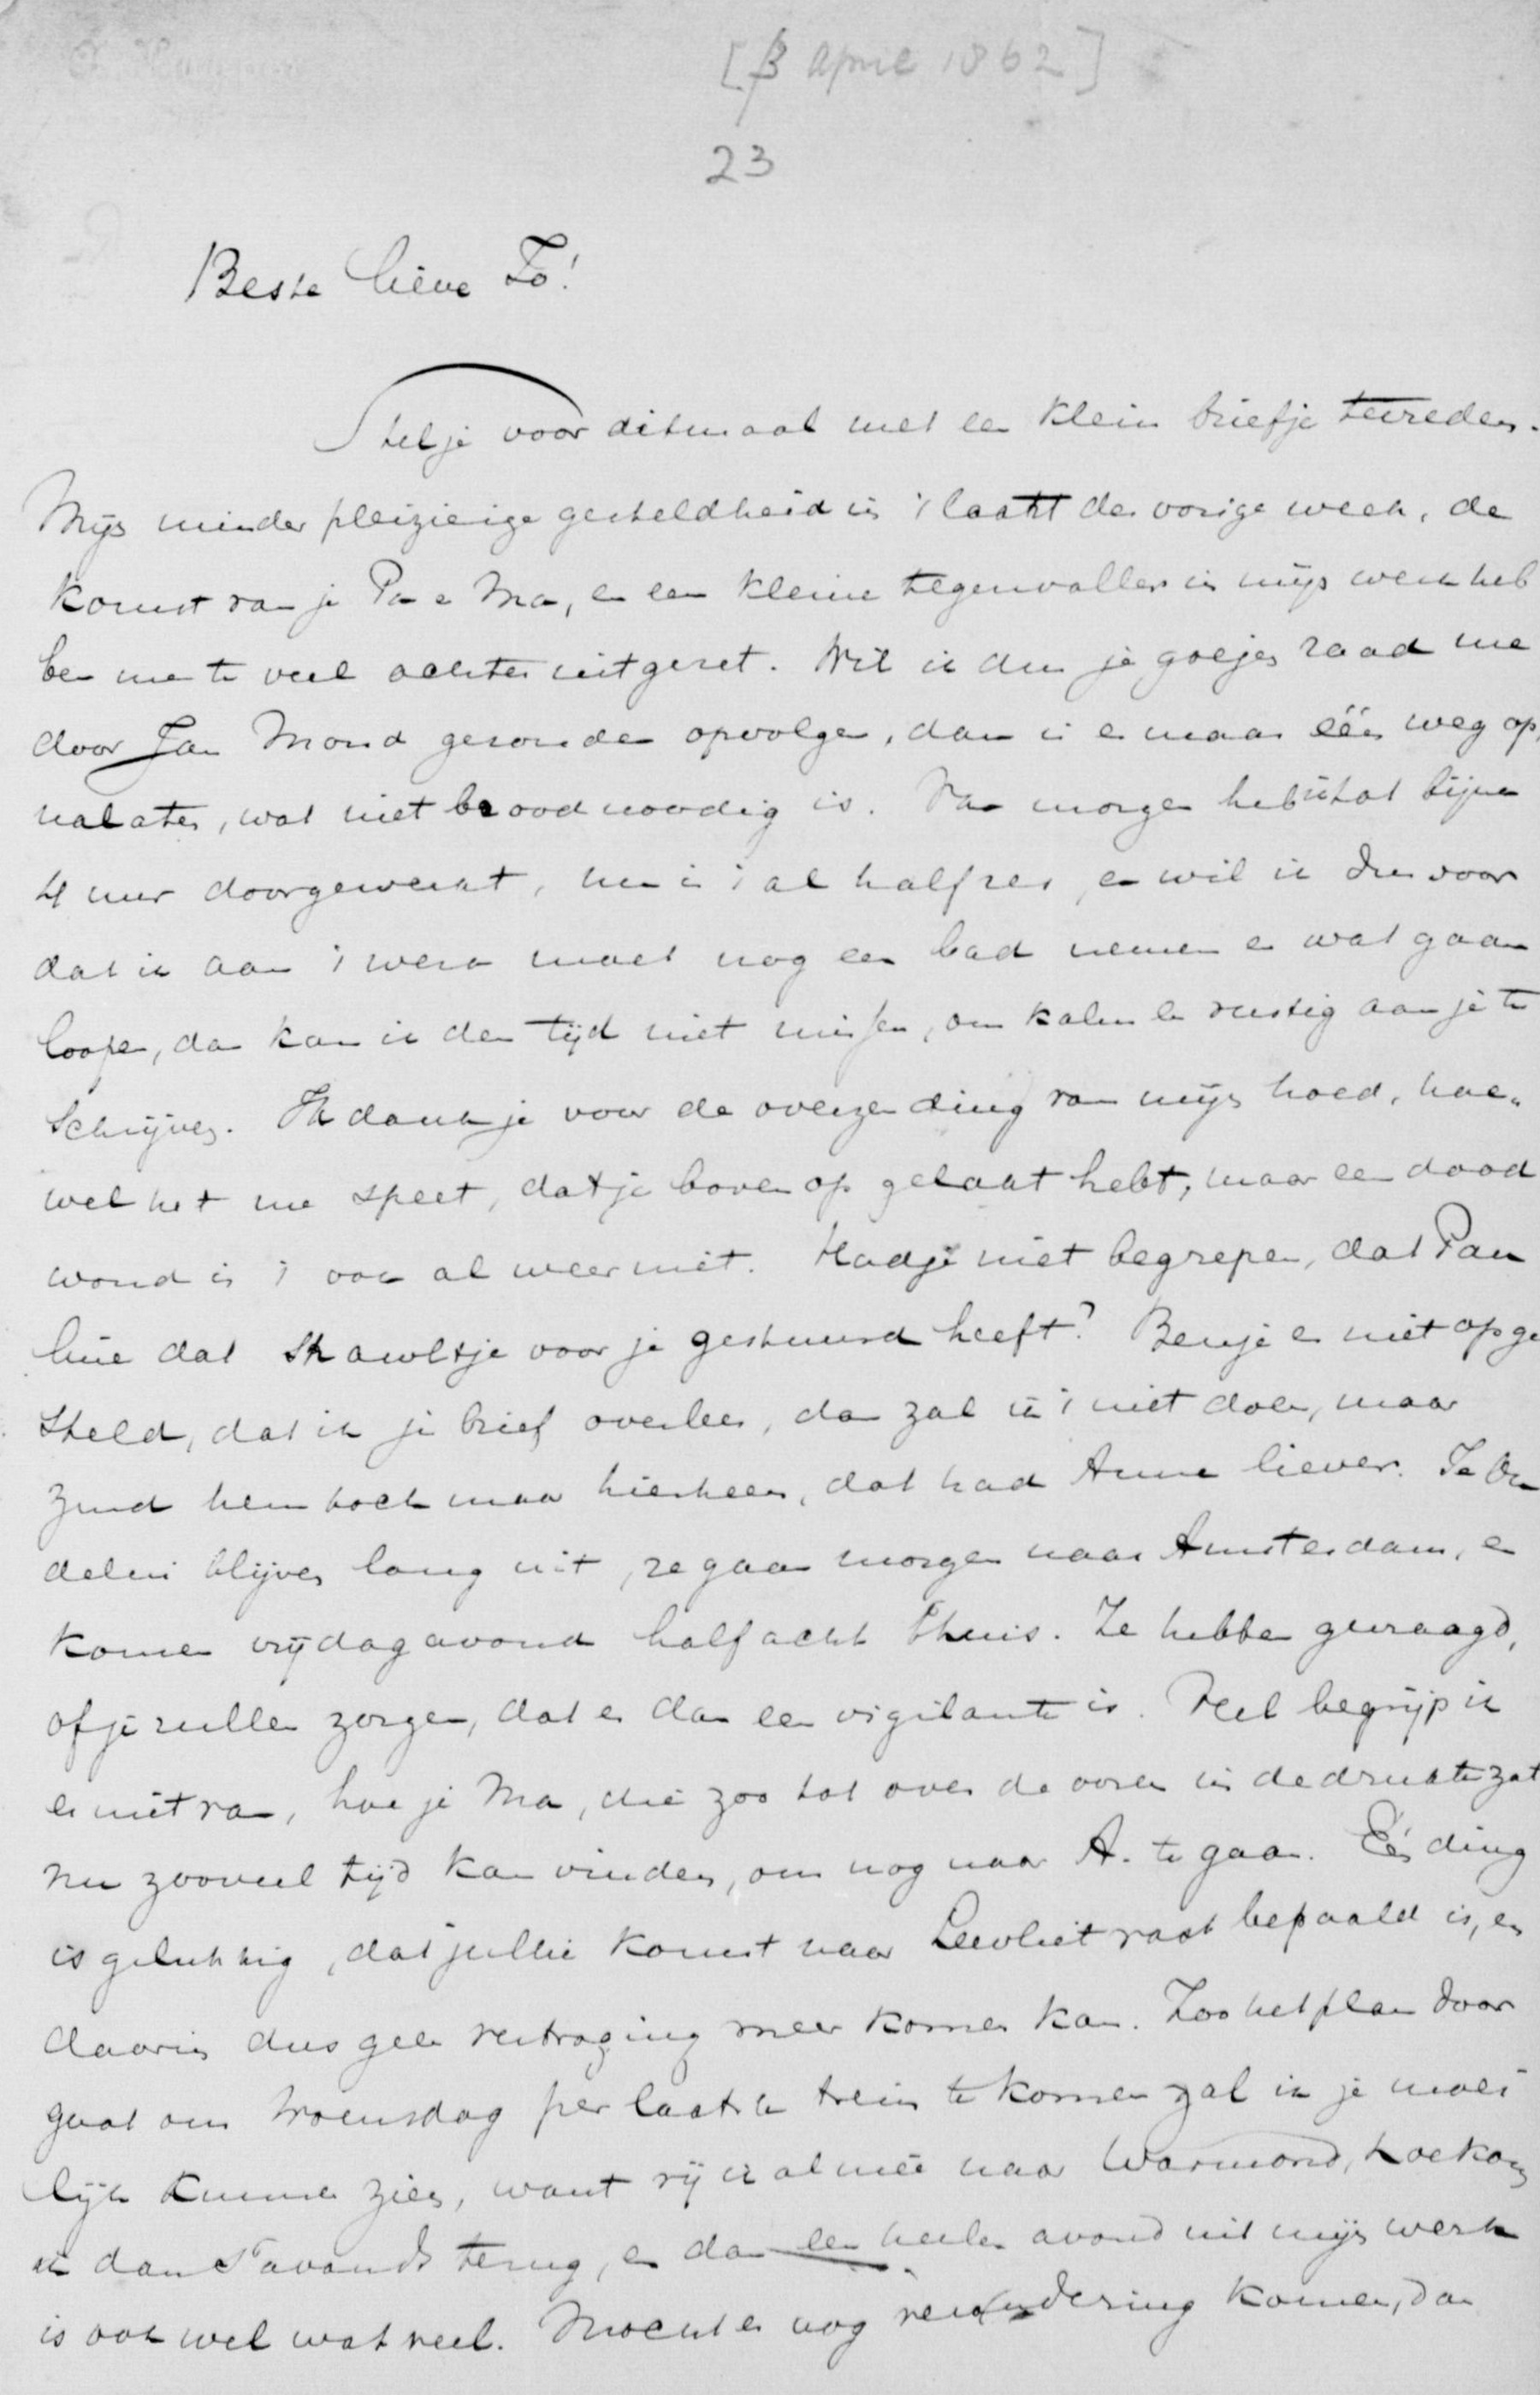 [3 April 1862]
23
Beste lieve Jo!
Stel je voor ditmaal met een klein briefje tevreden.
Mijn minder pleizierige gesteldheid in 't laatst der vorige week, de
komst van je Pa en Ma, en een kleine tegenvaller in mijn werk heb
ben me te veel achteruitgezet. Wil ik dus je goejen raad me
door Jan Mond gezonden opvolgen, dan is er maar één weg op,
nalaten, wat niet broodnoodig is. Van morgen heb ik tot bijna
4 uur doorgewerkt, nu is 't al half zes, en wil ik dus voor
dat ik aan 't werk moet nog een bad nemen en wat gaan
loopen, dan kan ik den tijd niet missen, om kalm en rustig aan je te
schrijven. Ik dank je voor de overzending van mijn hoed, hoe-
wel het me speet, dat je boven op gelakt hebt, maar een dood
wond is 't ook al weer niet. Had je niet begrepen, dat Pau
line dat Shawltje voor je gestuurd heeft? Ben je er niet op ge
steld, dat ik je brief overlees, dan zal ik 't niet doen, maar
zend hem toch maar hierheen, dat had Anne liever. Je Ou
delui blijven lang uit, ze gaan morgen naar Amsterdam, en
komen vrijdagavond half acht thuis. Ze hebben gevraagd,
of je zullen zorgen, dat er dan een vigilante is. Veel begrijp ik
er niet van, hoe je Ma, die zoo tot over de ooren in de drukte zat
nu zooveel tijd kan vinden, om nog naar A. te gaan. Eén ding
is gelukkig, dat jullie komst naar Leevliet vast bepaald is, en
daarin dus geen vertraging meer komen kan. Zoo het plan door
gaat om Woensdag per laatste trein te komen zal ik je moei
lijk kunnen zien, want rij ik al meê naar Warmond, hoe kom
ik dan 's avonds terug, en dan een heelen avond uit mijn werk
is ook wel wat veel. Mocht er nog verandering komen, dan